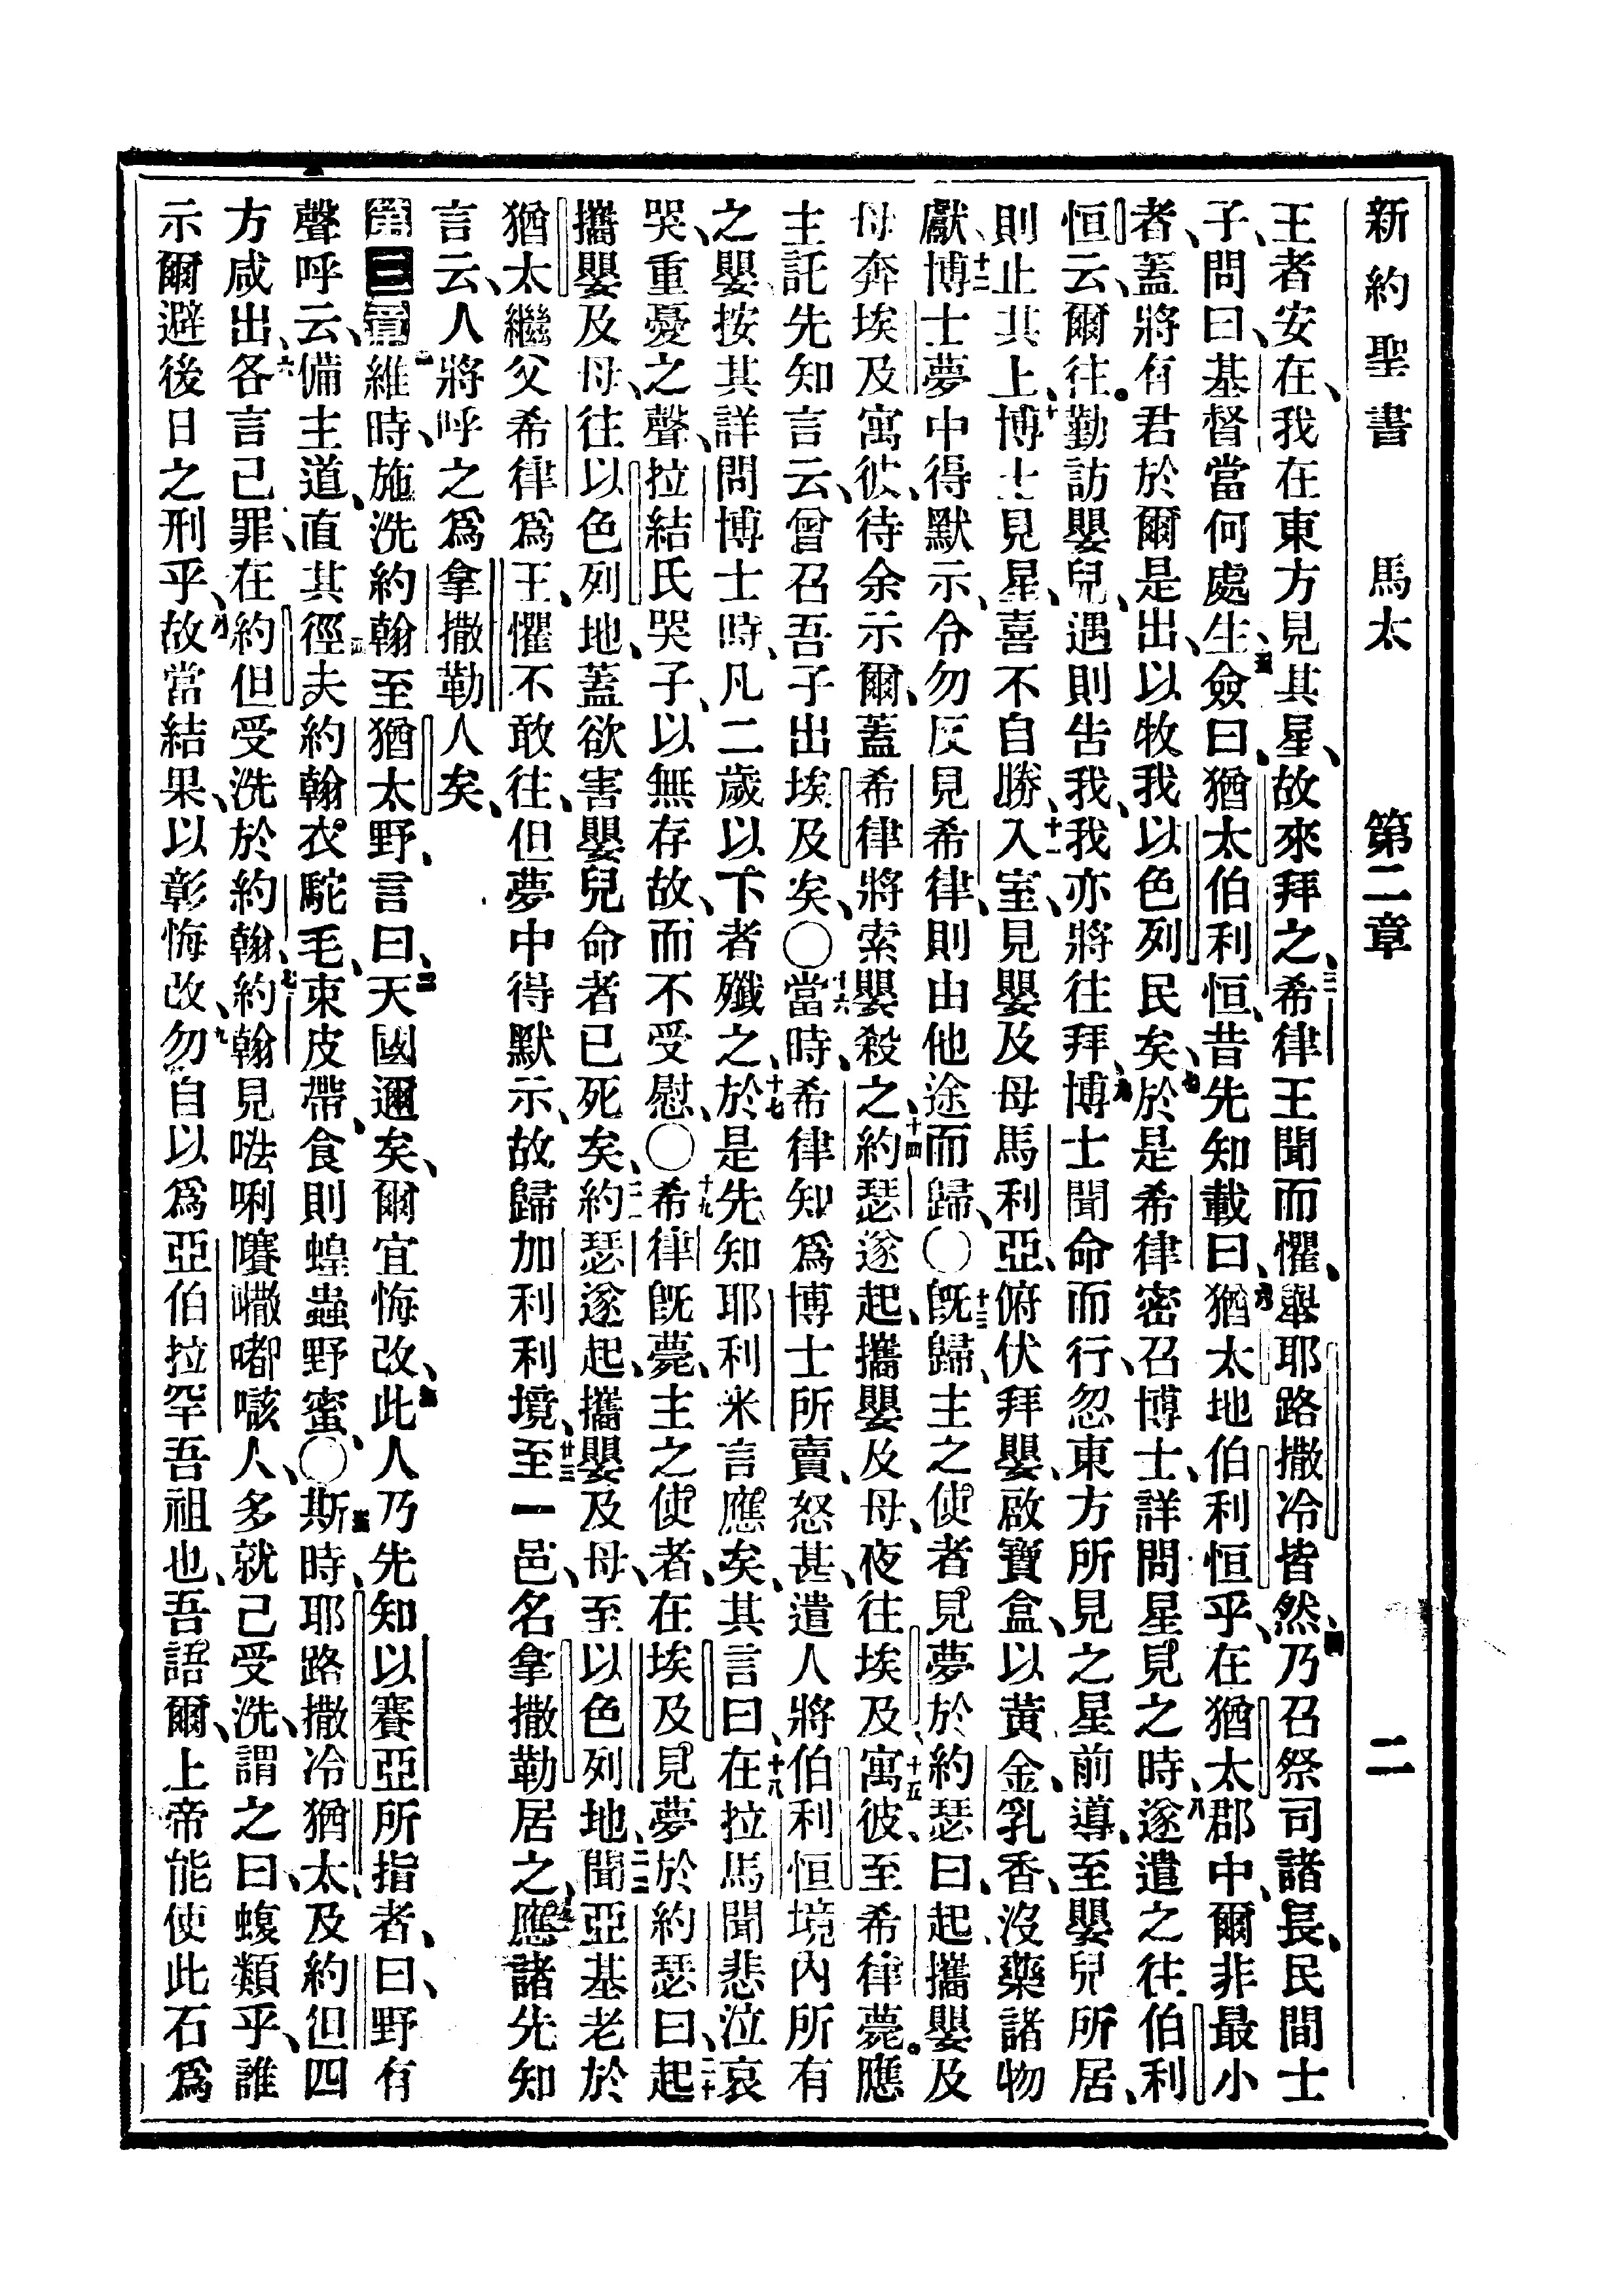 新約聖書　馬太　第二章　二
王者安在、我在東方見其星、故來拜之、三希律王聞而懼、舉耶路撒冷皆然、四乃召祭司諸長、民間士
子、問曰、基督當何處生、五僉曰、猶太伯利恒、昔先知載曰、六猶太地伯利恒乎、在猶太郡中、爾非最小
者、蓋將有君於爾是出、以牧我以色列民矣、七於是希律密召博士、詳問星見之時、八遂遣之往伯利
恒、云、爾往。勤訪嬰兒、遇則告我、我亦將往拜、九博士聞命而行、忽東方所見之星前導、至嬰兒所居、
則止其上、十博士見星、喜不自勝、十一入室、見嬰及母馬利亞、俯伏拜嬰、啟寶盒、以黃金、乳香、沒藥諸物
獻、十二博士夢中得默示、令勿反見希律、則由他途而歸、〇十三旣歸、主之使者見夢於約瑟曰、起、攜嬰及
母奔埃及寓彼、待余示爾、蓋希律將索嬰殺之、十四約瑟遂起、攜嬰及母、夜往埃及、十五寓彼、至希律薨。應
主託先知言云、曾召吾子出埃及矣、〇十六當時、希律知爲博士所賣、怒甚、遣人將伯利恒境內所有
之嬰、按其詳問博士時、凡二歲以下者殲之、十七於是先知耶利米言應矣、其言曰、十八在拉馬聞悲泣哀
哭、重憂之聲、拉結氏哭子、以無存故、而不受慰、〇十九希律旣薨、主之使者、在埃及見夢於約瑟曰、二十起
攜嬰及母、往以色列地、蓋欲害嬰兒命者已死矣、二一約瑟遂起、攜嬰及母、至以色列地、二二聞亞基老於
猶太繼父希律爲王、懼不敢往、但夢中得默示、故歸加利利境、廿三至一邑、名拿撒勒居之、應諸先知
言云、人將呼之爲拿撒勒人矣、
第三章一維時、施洗約翰至猶太野、言曰、二天國邇矣、爾宜悔改、三此人乃先知以賽亞所指者、曰、野有
聲呼云、備主道、直其徑、四夫約翰衣駝毛、束皮帶、食則蝗蟲野蜜、〇五斯時、耶路撒冷猶太、及約但四
方咸出、六各言己罪、在約但受洗於約翰、七約翰見㕸唎㘔㘚嘟㗒人、多就己受洗、謂之曰、蝮類乎、誰
示爾避後日之刑乎、八故當結果、以彰悔改、九勿自以爲亞伯拉罕吾祖也、吾語爾、上帝能使此石爲